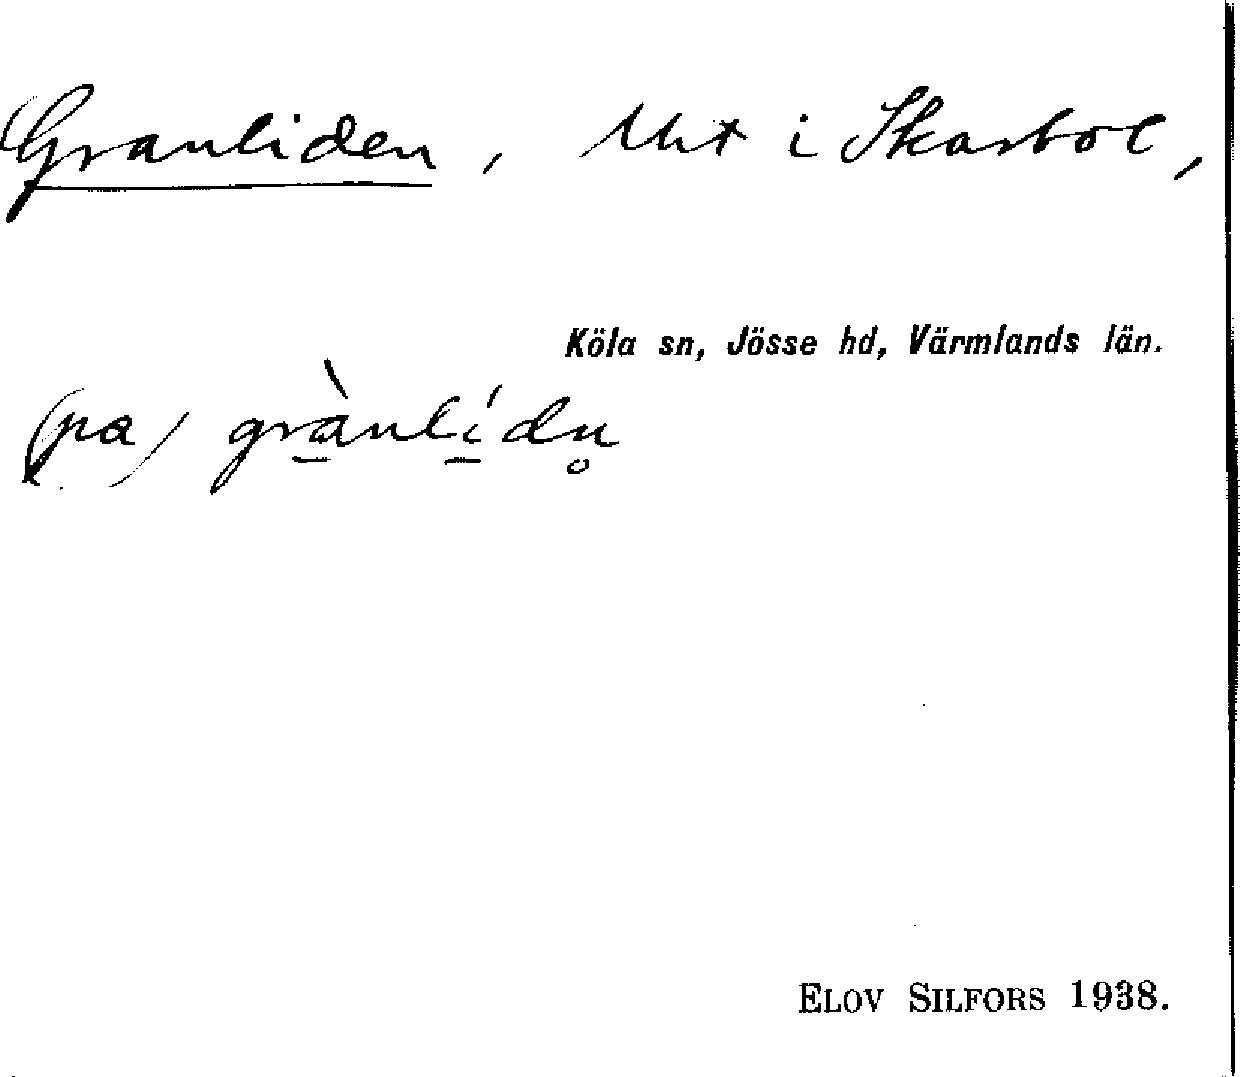 Granliden, Uht i Skarbol,
Köla sn, Jösse hd, Värmlands län.
(pa) grànlídn̥
ELOV SILFORS 1938.